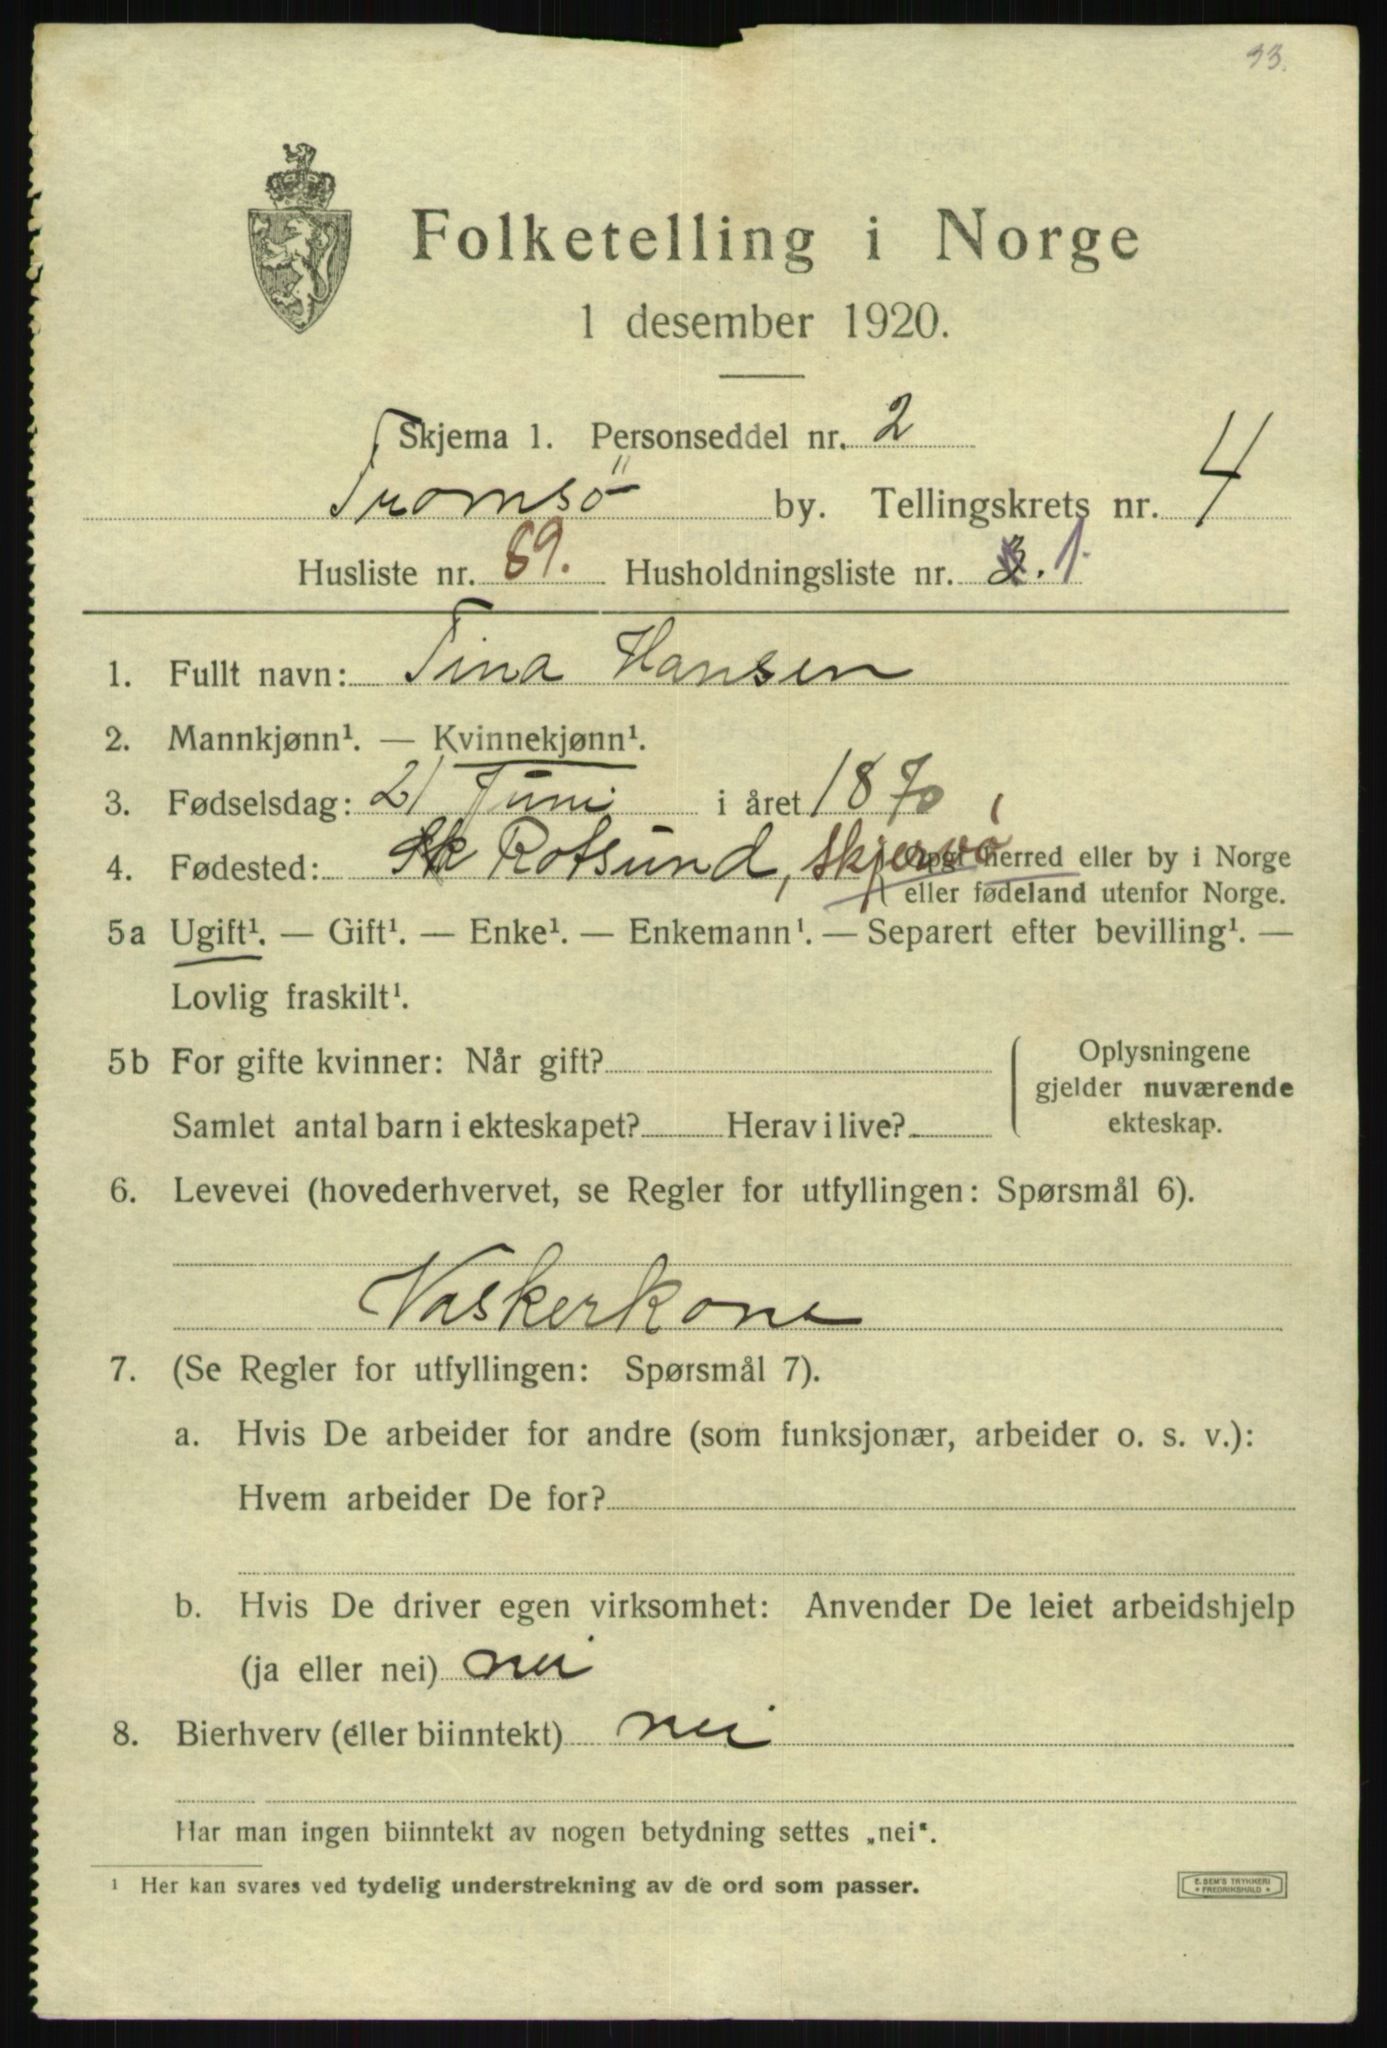 33.
Folketelling i Norge
1 desember 1920.
Skjema 1. Personseddel nr. 2
Tromsö by. Tellingskrets nr. 4
Husliste nr. 89. Husholdningsliste nr. 3. 1.
1. Fullt navn: Tina Hansen
2. Mannkjønn¹. — Kvinnekjønn¹.
3. Fødselsdag: 21 Juni i året 1870
4. Fødested: Rotsund, Skjervö Opgi herred eller by i Norge
eller fødeland utenfor Norge.
5a Ugift¹. — Gift¹. — Enke¹. — Enkemann¹. — Separert efter bevilling¹. —
Lovlig fraskilt¹.
5b For gifte kvinner: Når gift?
Samlet antal barn i ekteskapet? Herav i live?
Oplysningene
gjelder nuværende
ekteskap.
6. Levevei (hovederhvervet, se Regler for utfyllingen: Spørsmål 6).
Vaskerkone
7. (Se Regler for utfyllingen: Spørsmål 7).
a. Hvis De arbeider for andre (som funksjonær, arbeider o. s. v.):
Hvem arbeider De for?
b. Hvis De driver egen virksomhet: Anvender De leiet arbeidshjelp
(ja eller nei) nei
8. Bierhverv (eller biinntekt) nei
Har man ingen biinntekt av nogen betydning settes „nei".
¹ Her kan svares ved tydelig understrekning av de ord som passer.
E. SEM'S TRYKKERI
FREDRIKSHALD